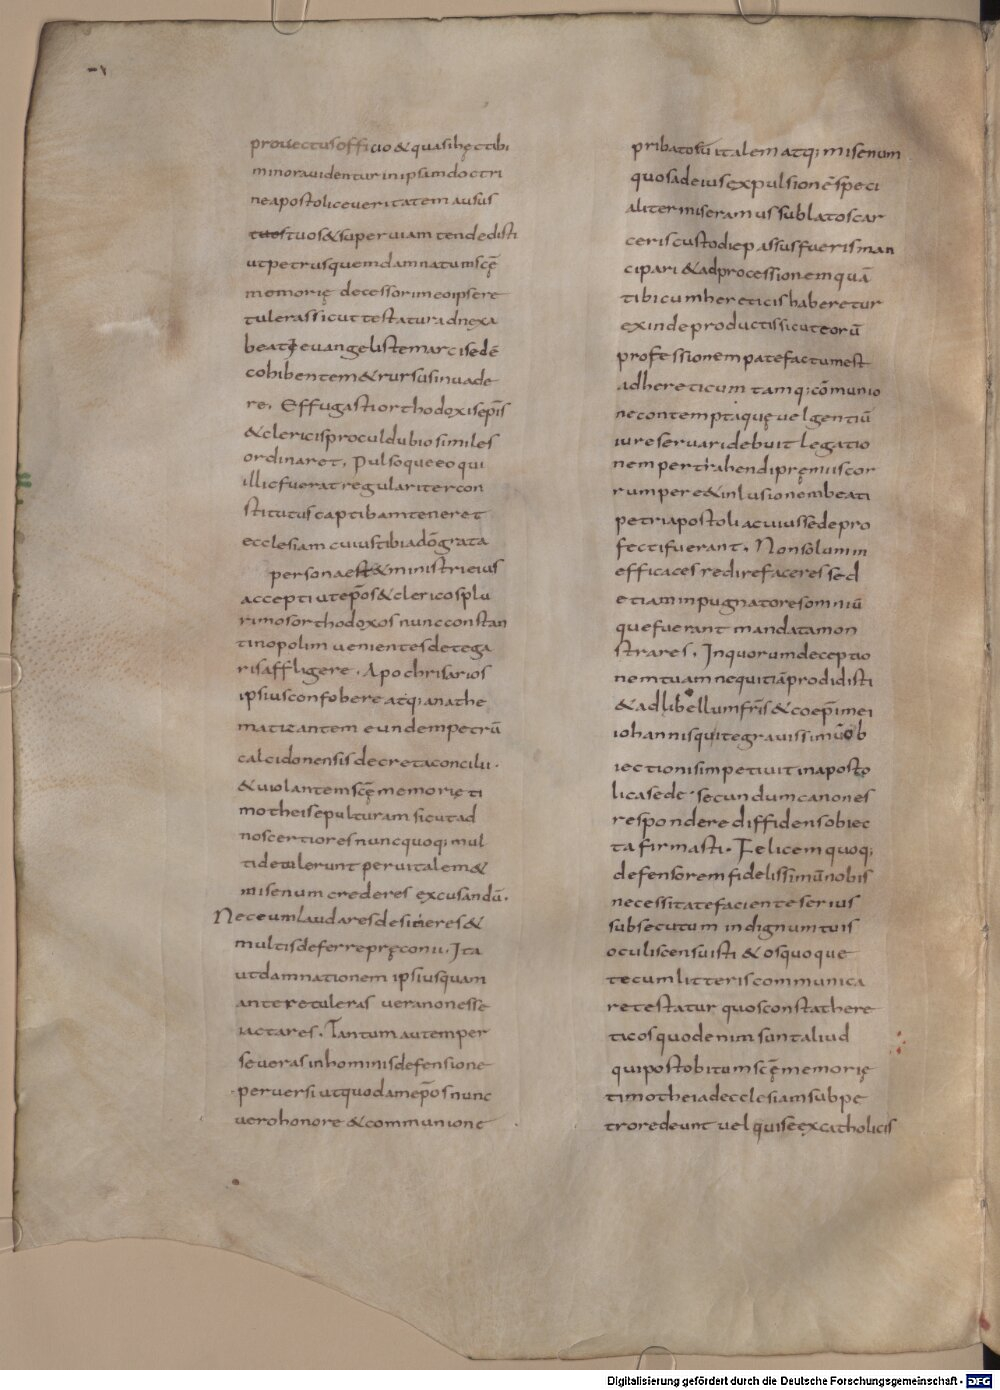 prouectus officio & quasi hęc tibi
minora uidentur in ipsum doctri
ne apostolice ueritatem ausus
tuos tuos & superuiam tendedisti
ut petrus quem damnatum scę̄
memorię decessori meo ipse re
tuleras sicut testatur adnexa
beati euangeliste marci sedē
cohibentem & rursus inuade
re. Effugasti orthodoxis ep̄is
& clericis procul dubio similes
ordinaret. Pulsoque eo qui
illic fuerat regulariter con
stitutus captibam teneret
ecclesiam cuius tibi adō grata
persona est & ministri eius
accepti ut ep̄os & clericos plu
rimos orthodoxos nunc constan
tinopolim uenientes detega
ris affligere. Apochrisarios
ipsius confobere atq; anathe
matizantem eundem petrū
calcidonensis decreta concilii.
& uiolantem scę̄ memorię ti
mothei sepulturam sicut ad
nos certiores nunc quoq; mul
ti detulerunt per uitalem &
misenum crederes excusandū.
Nec eum laudares desineres &
multis deferre pręconii. Ita
ut damnationem ipsius quam
ante retuleras uera non esse
iactares. Tantum autem per
seueras in hominis defensione
peruersi ut quodam ep̄os nunc
uero honore & communione
pribatos uitalem atq; misenum
quos ad eius expulsionē speci
aliter miseramus sublatos car
ceris custodie passus fueris man
cipari & ad processionem quā
tibi cum hereticis haberetur
exinde productis sicut eorū
professionem patefactum est
ad hereticum tamq; cōmunio
ne contempta quę uel gentiū
iure seruari debuit legatio
nem pertrahendi pręmiis cor
rumpere & in lusionem beati
petri apostoli a cuius sede pro
fecti fuerant. Non solum in
efficaces redire faceres sed
etiam inpugnatores omniū
que fuerant mandata mon
strares. In quorum deceptio
nem tuam nequitiā prodidisti
& ad libellum fr̄is & coep̄i mei
iohannis qui te grauissimū ob
iectionis impetiuit in aposto
lica sede secundum canones
respondere diffidens obiec
ta firmasti. Felicem quoq;
defensorem fidelissimū nobis
necessitate faciente serius
subsecutum indignum tuis
oculis censuisti & os quoque
tecum litteris communica
re testatur quos constat here
ticos quod enim sunt aliud
qui post obitum scę̄ memorię
timothei ad ecclesiam sub pe
tro redeunt uel qui se ex catholicis
Digitalisierung gefördert durch die Deutsche Forschungsgemeinschaft - DFG